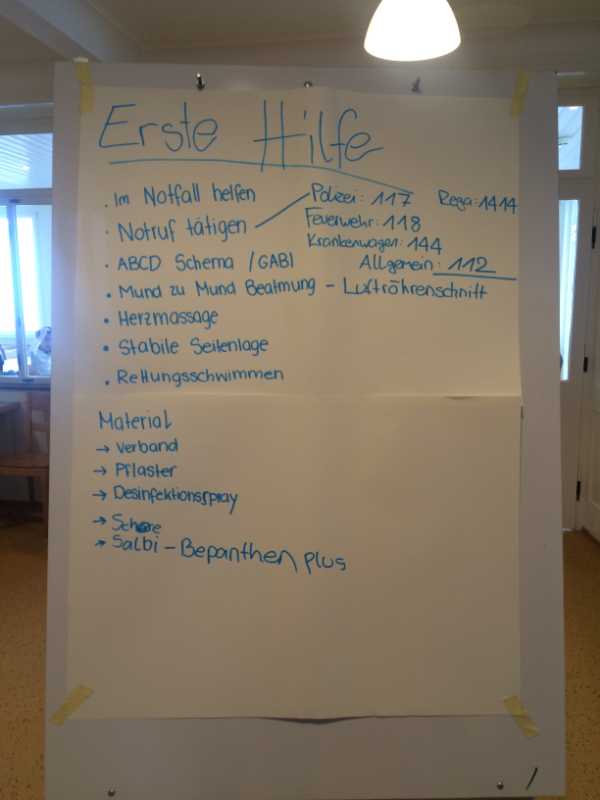 Erste Hilfe
• Im Notfall helfen
• Notruf tätigen
Polizei: 117 Rega: 1414
Feuerwehr: 118
Krankenwagen: 144
Allgemein: 112
• ABCD Schema / GABI
• Mund zu Mund Beatmung – Luftröhrenschnitt
• Herzmassage
• Stabile Seitenlage
• Rettungsschwimmen
Material
→ Verband
→ Pflaster
→ Desinfektionsspray
→ Schere
→ Salbi – Bepanthen plus